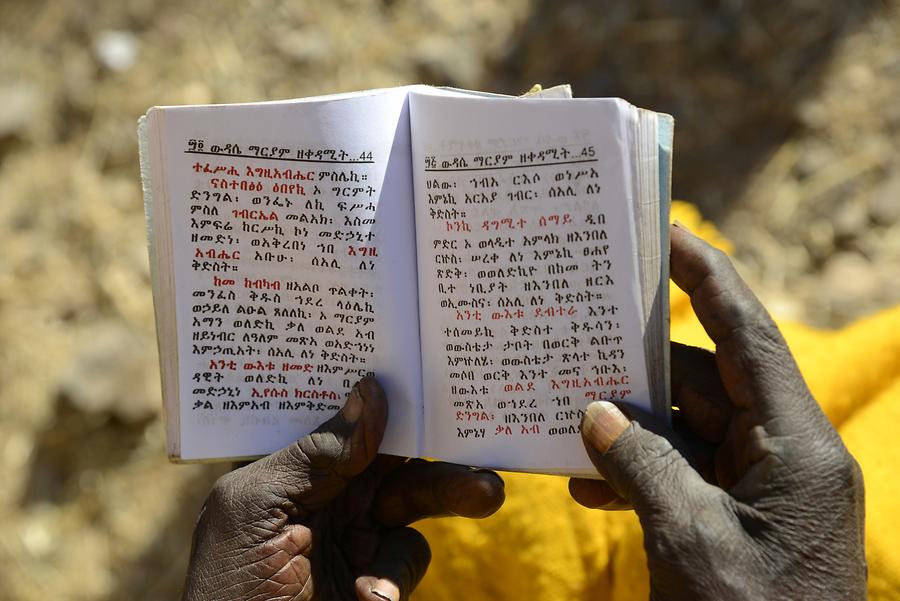 ፵፬ ውዳሴ ማርያም ዘቀዳሚት...44
ተፈሥሒ እግዚአብሔር ምስሌኪ።
ናስተበፅዕ ዕበየኪ ኦ ግርምት
ድንግል፡ ወንፌኑ ለኪ ፍሥሓ
ምስለ ገብርኤል መልአክ፡ እስመ
እምፍሬ ከርሥኪ ኮነ መድኃኒተ
ዘመድነ፡ ወአቅረበነ ኀበ እግዚ
አብሔር አቡሁ፡ ሰአሊ ለነ
ቅድስት።
ከመ ከብካብ ዘአልቦ ጥልቀት፡
መንፈስ ቅዱስ ኀደረ ላዕሌኪ
ወኃይለ ልዑል ጸለለኪ፡ ኦ ማርያም
አማን ወለድኪ ቃለ ወልደ አብ
ዘይነብር ለዓለም መጽአ ወአድኀነነ
እምኃጢአት፡ ሰአሊ ለነ ቅድስት።
አንቲ ውእቱ ዘመድ ዘእምሥርወ
ዳዊት ወለድኪ ለነ
መድኃኒነ ኢየሱስ ክርስቶስ፡
ቃል ዘእምአብ ዘእምቅድመ
፵፭ ውዳሴ ማርያም ዘቀዳሚት...45
ህልው፡ ኀብአ ርእሶ ወነሥአ
እምኔኪ አርአያ ገብር፡ ሰአሊ ለነ
ቅድስት።
ኮንኪ ዳግሚተ ሰማይ ዲበ
ምድር ኦ ወላዲተ አምላክ ዘእንበለ
ርኵስ፡ ሠረቀ ለነ እምኔኪ ፀሐየ
ጽድቅ፡ ወወለድኪዮ በከመ ትን
ቢተ ነቢያት ዘእንበለ ዘርእ
ወኢሙስና፡ ሰአሊ ለነ ቅድስት።
አንቲ ውእቱ ደብተራ እንተ
ተሰመይኪ ቅድስተ ቅዱሳን፡
ወውስቴታ ታቦት በወርቅ ልቡጥ
እምኵለሄ፡ ወውስቴታ ጽላተ ኪዳን
መሶበ ወርቅ እንተ መና ኅቡእ፡
ዘውእቱ ወልደ እግዚአብሔር
መጽአ ወኀደረ ኀበ ማርያም
ድንግል፡ ዘእንበለ ርኵስ
እምኔሃ ቃለ አብ